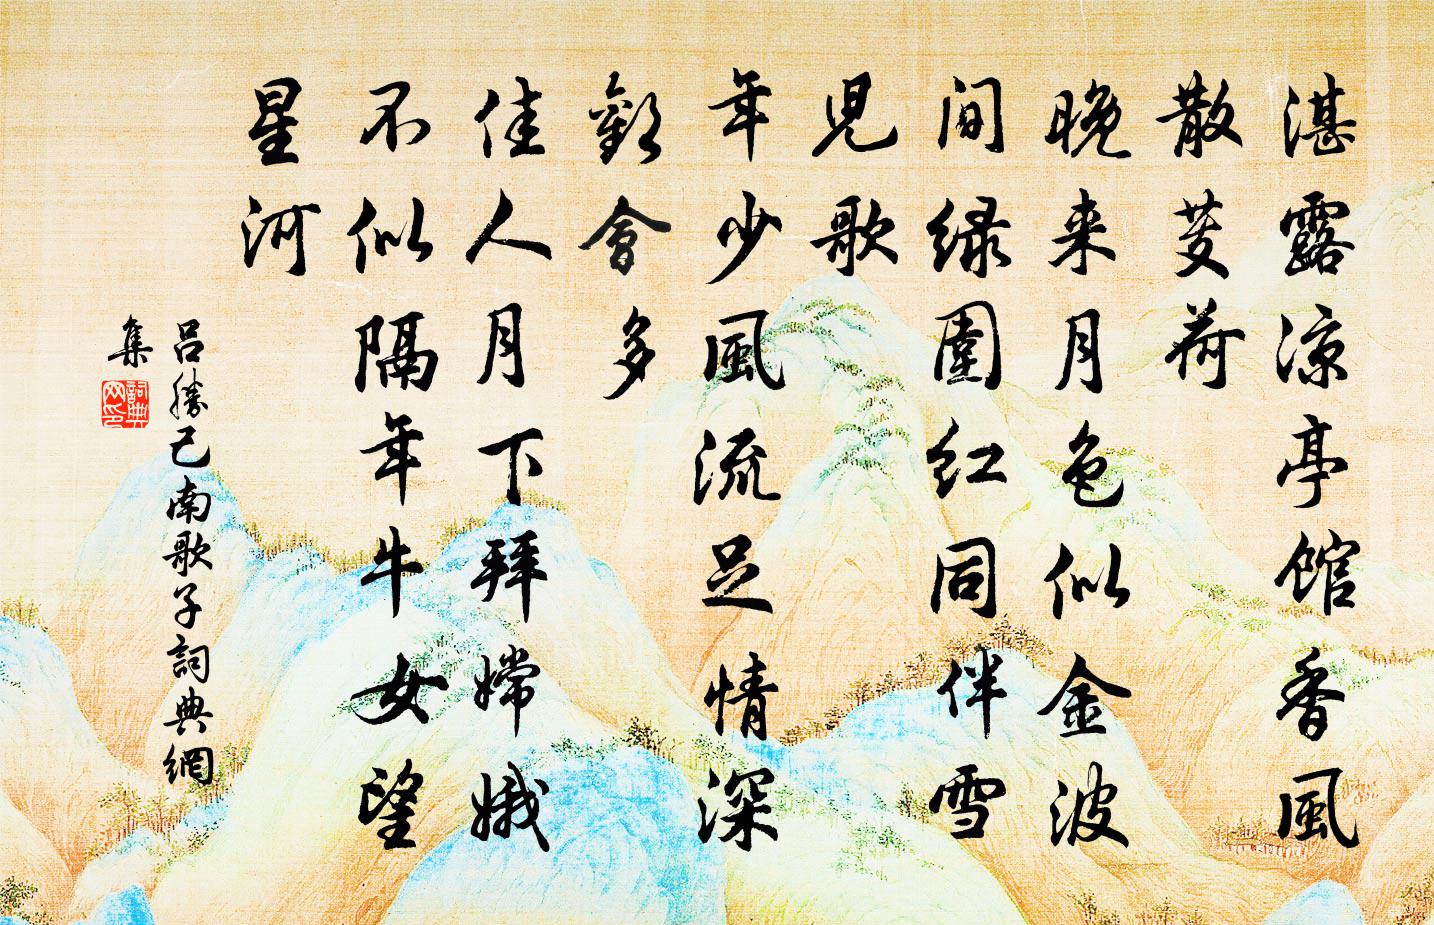 湛露涼亭館香風
散芰荷
晚来月色似金波
间绿圍红同伴雪
児歌
年少風流足情深
歡會多
佳人月下拜嫦娥
不似隔年牛女望
星河
吕勝己南歌子詞典網
集
詞典網印